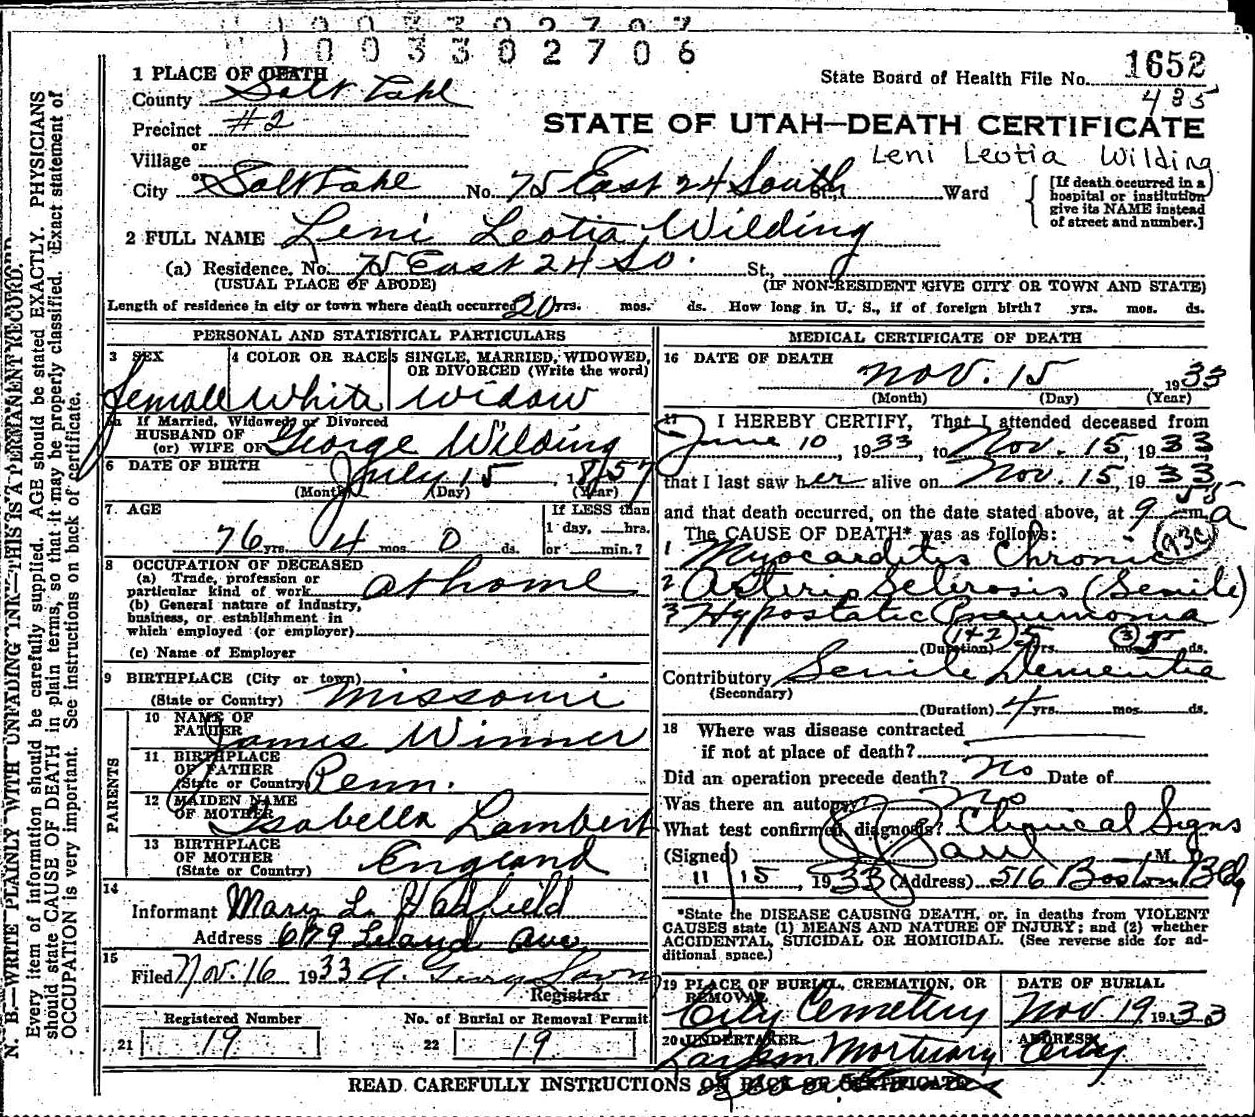 1003302707
1003302706
1652
State Board of Health File No.
435
STATE OF UTAH—DEATH CERTIFICATE
Leni Leotia Wilding
1 PLACE OF DEATH
County Salt Lake
Precinct #2
or
Village
or
City Salt Lake No. 75 East 24 South St., Ward
[If death occurred in a hospital or institution give its NAME instead of street and number.]
2 FULL NAME Leni Leotia Wilding
(a) Residence. No. 75 East 24 So. St.,
(USUAL PLACE OF ABODE) (IF NON-RESIDENT GIVE CITY OR TOWN AND STATE)
Length of residence in city or town where death occurred 20 yrs. mos. ds. How long in U. S., if of foreign birth? yrs. mos. ds.
PERSONAL AND STATISTICAL PARTICULARS
3 SEX 4 COLOR OR RACE 5 SINGLE, MARRIED, WIDOWED, OR DIVORCED (Write the word)
female White Widow
If Married, Widowed or Divorced
HUSBAND OF
(or) WIFE OF George Wilding
6 DATE OF BIRTH July 15, 1857
(Month) (Day) (Year)
7. AGE If LESS than
1 day, hrs.
76 yrs. 4 mos. 0 ds. or min.?
8 OCCUPATION OF DECEASED
(a) Trade, profession or
particular kind of work at home
(b) General nature of industry,
business, or establishment in
which employed (or employer)
(c) Name of Employer
9 BIRTHPLACE (City or town)
(State or Country) Missouri
PARENTS
10 NAME OF
FATHER James Winner
11 BIRTHPLACE
OF FATHER
(State or Country) Penn.
12 MAIDEN NAME
OF MOTHER Isabella Lambert
13 BIRTHPLACE
OF MOTHER
(State or Country) England
14
Informant Mary L. Hadfield
Address 679 Leland Ave
15
Filed Nov. 16 1933
Registrar
Registered Number No. of Burial or Removal Permit
21 19 22 19
MEDICAL CERTIFICATE OF DEATH
16 DATE OF DEATH
Nov. 15, 1933
(Month) (Day) (Year)
17 I HEREBY CERTIFY, That I attended deceased from
June 10, 1933, to Nov. 15, 1933
that I last saw her alive on Nov. 15, 1933
and that death occurred, on the date stated above, at 9 55 a m.
The CAUSE OF DEATH* was as follows:
93c
1 Myocarditis Chronic
2 Arterio Sclerosis (Senile)
3 Hypostatic Pneumonia
(Duration) (1+2) 5 yrs. mos. (3) 5 ds.
Contributory Senile Dementia
(Secondary)
(Duration) 4 yrs. mos. ds.
18 Where was disease contracted
if not at place of death?
Did an operation precede death? no Date of
Was there an autopsy? No
What test confirmed diagnosis? Clinical Signs
(Signed) Paul M. D.
11/15, 1933 (Address) 516 Boston Bldg
*State the DISEASE CAUSING DEATH, or, in deaths from VIOLENT
CAUSES state (1) MEANS AND NATURE OF INJURY; and (2) whether
ACCIDENTAL, SUICIDAL OR HOMICIDAL. (See reverse side for ad-
ditional space.)
19 PLACE OF BURIAL, CREMATION, OR REMOVAL DATE OF BURIAL
City Cemetery Nov 19 1933
20 UNDERTAKER ADDRESS
Larkin Mortuary City
READ CAREFULLY INSTRUCTIONS ON BACK OF CERTIFICATE
N. B.—WRITE PLAINLY WITH UNFADING INK—THIS IS A PERMANENT RECORD.
Every item of information should be carefully supplied. AGE should be stated EXACTLY. PHYSICIANS
should state CAUSE OF DEATH in plain terms, so that it may be properly classified. Exact statement of
OCCUPATION is very important. See instructions on back of certificate.